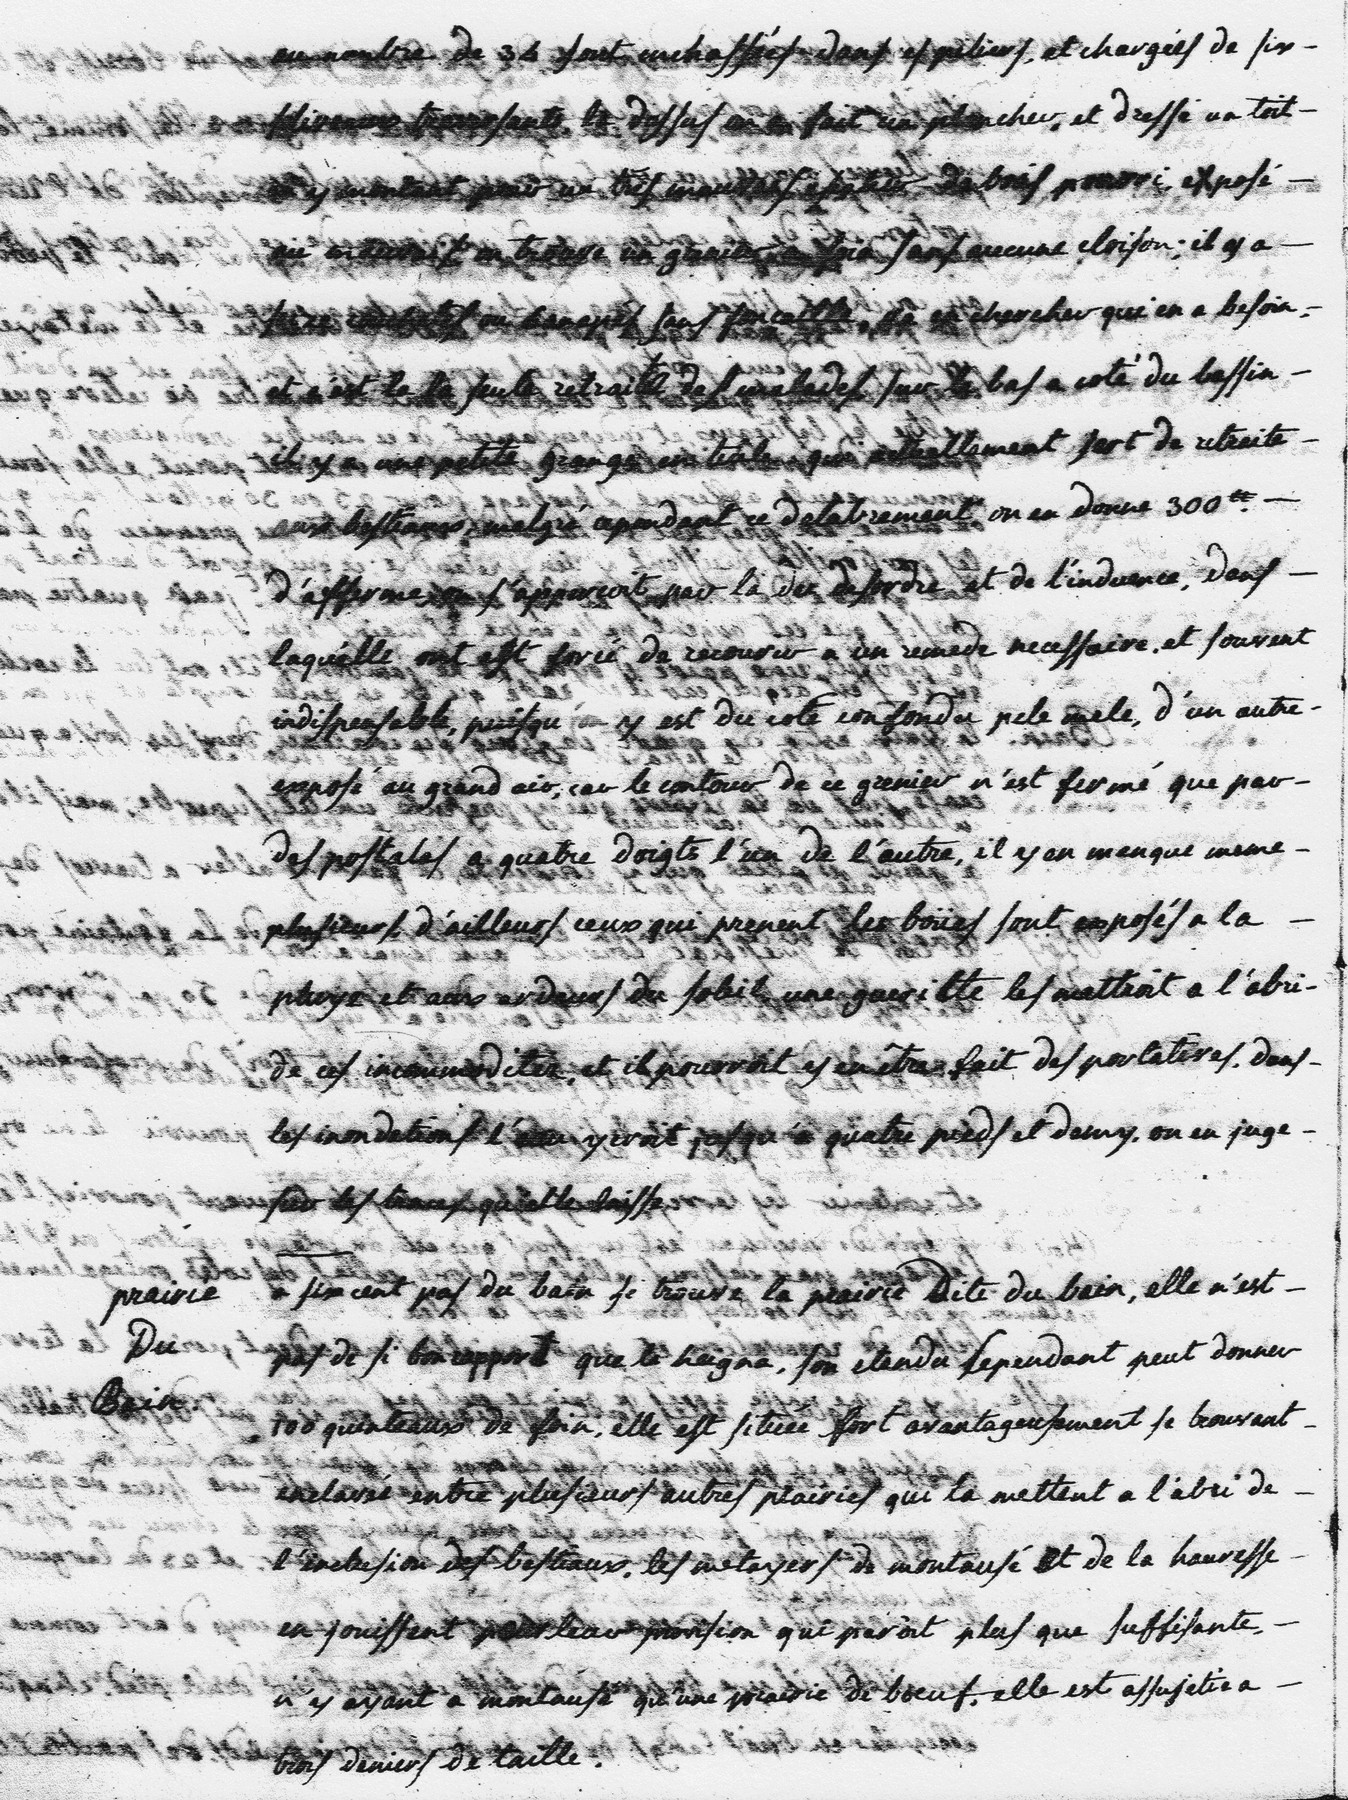 au nombre de 34 sont enchassées dans es piliers, et chargées de six
soliveaux traversants la dessus on a fait un plancher, et dressé un toit
en y montant par un très mauvais de bois pourri, exposé
au mauvais on trouve un grenier a foin sans aucune cloison; il y a
ou canapés sans, va en chercher qui en a besoin,
et c'est la la seule retraitte des malades, sur le bas a coté du bassin
il y a une petite grange qui actuellement sert de retraite
aux bestiaux, malgré cependant ce delabrement on en donne 300 tt.
d'afferme, on s'apperçoit par la du desordre et de l'induence, dans
laquelle ont est forcé de recourir a un remede necessaire, et souvent
indispensable, puisqu'on y est du coté confondu pele mele, d'un autre
exposé au grand air, car le contour de ce grenier n'est fermé que par
des postalas a quatre doigts l'un de l'autre, il y en manque meme
plusieurs, d'ailleurs ceux qui prenent les boües sont exposés a la
pluye et aux ardeurs du soleil une gueritte les mettroit a l'abri
de ces incommodites, et il pourroit y en être fait des portatives, dans
les inondations l'eau y croit jusqu'a quatre pieds et demy, on en juge
sur les traces qu'elle laisse
prairie
Du
Bain.
a six cent pas du bain se trouve la prairie Dite du bain, elle n'est
pas de si bon rapport que le haigna, son etendu sependant peut donner
100 quinteaux de foin, elle est située fort avantageusement se trouvant
enclavée entre plusieurs autres prairies qui la mettent a l'abri de
l'inclusion des bestiaux, les metayers de montausé et de la hauresse
en jouissent pour leur provision qui paroit plus que suffisante,
n'y ayant a montausé qu'une prairie de boeuf, elle est assujetie a
trois deniers de taille.